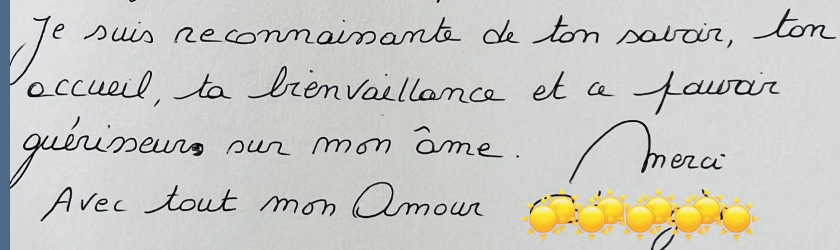 Je suis reconnaissante de ton savoir, ton
accueil, ta bienvaillance et ce pouvoir
guérisseur, sur mon âme.
Merci
Avec tout mon Amour